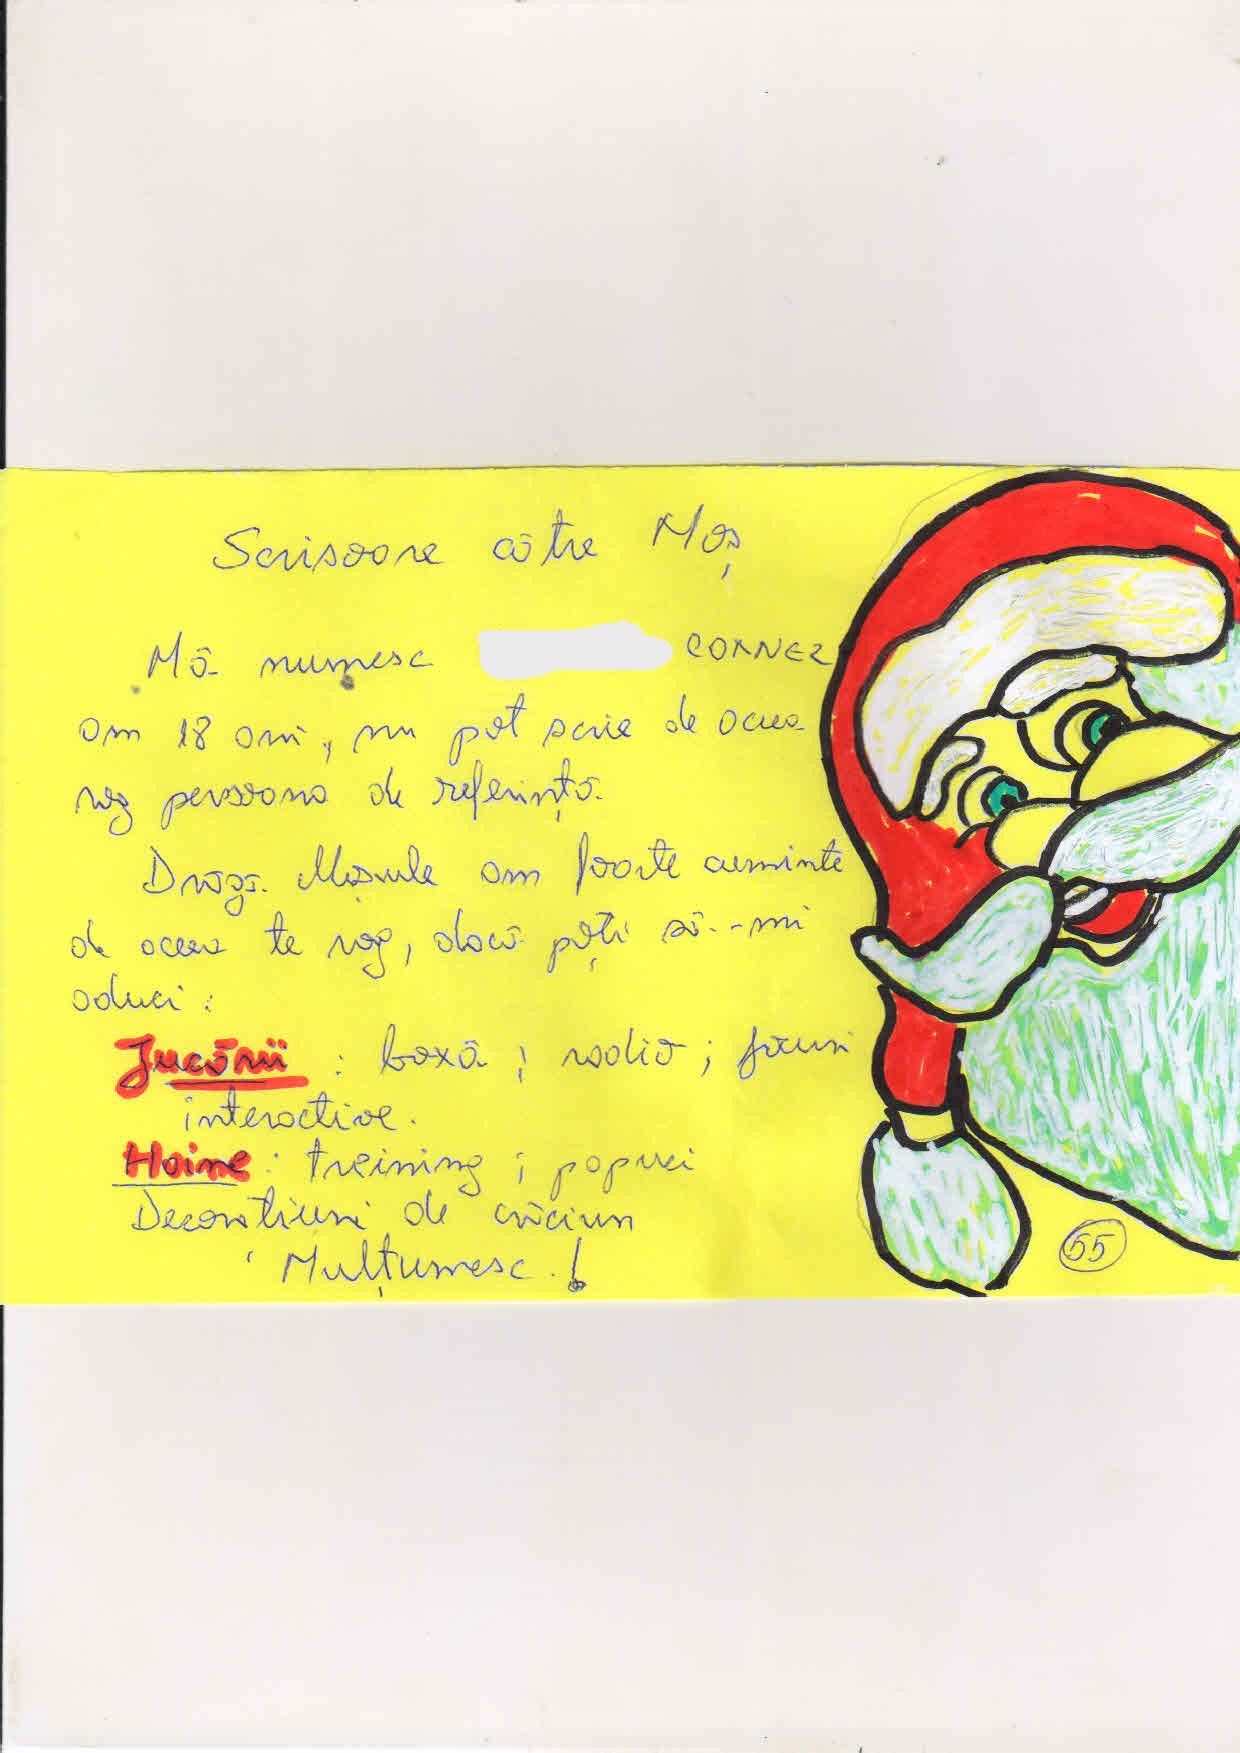 Scrisoare către Moș
Mă numesc CORNEL
am 18 ani, nu pot scrie de aceea
rog persoana de referință.
Dragă Moșule am foarte cuminte
de aceea te rog, dacă poți să-mi
aduci:
Jucării : boxă ; radio ; jocuri
interactive.
Haine : treining ; papuci
Decorațiuni de crăciun
Mulțumesc !
55